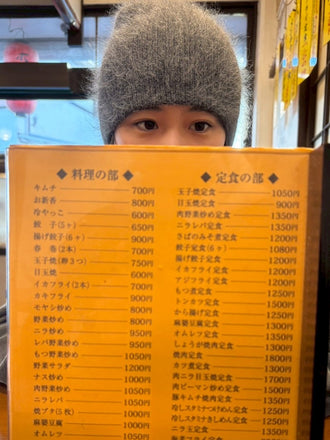 ◆ 料理の部 ◆
キムチ 700円
お新香 800円
冷やっこ 600円
餃 子(5ヶ) 650円
揚げ餃子(6ヶ) 900円
春 巻(2本) 700円
玉子焼(卵3つ) 750円
目玉焼 600円
イカフライ(2本) 700円
カキフライ 900円
モヤシ炒め 800円
野菜炒め 800円
ニラ炒め 950円
レバ野菜炒め 950円
もつ野菜炒め 1050円
野菜サラダ 1200円
ナス炒め 1000円
肉野菜炒め 1050円
ニラレバ 1050円
焼ブタ(5枚) 1000円
麻婆豆腐 1000円
オムレツ 1050円
◆ 定食の部 ◆
玉子焼定食 1050円
目玉焼定食 900円
肉野菜炒め定食 1350円
ニラレバ定食 1350円
さばのみそ煮定食 1200円
餃子定食(6ヶ) 1080円
揚げ餃子定食 1200円
イカフライ定食 1200円
アジフライ定食 1200円
もつ煮定食 1250円
トンカツ定食 1500円
から揚げ定食 1250円
麻婆豆腐定食 1300円
オムレツ定食 1350円
しょうが焼肉定食 1300円
焼肉定食 1800円
カツ煮定食 1300円
肉ニラ目玉焼定食 1700円
肉ピーマン炒め定食 1500円
豚キムチ焼肉定食 1350円
冷しスタミナつけめん定食 1250円
冷しスタミナきしめん定食 1250円
ニラ玉定食 1350円